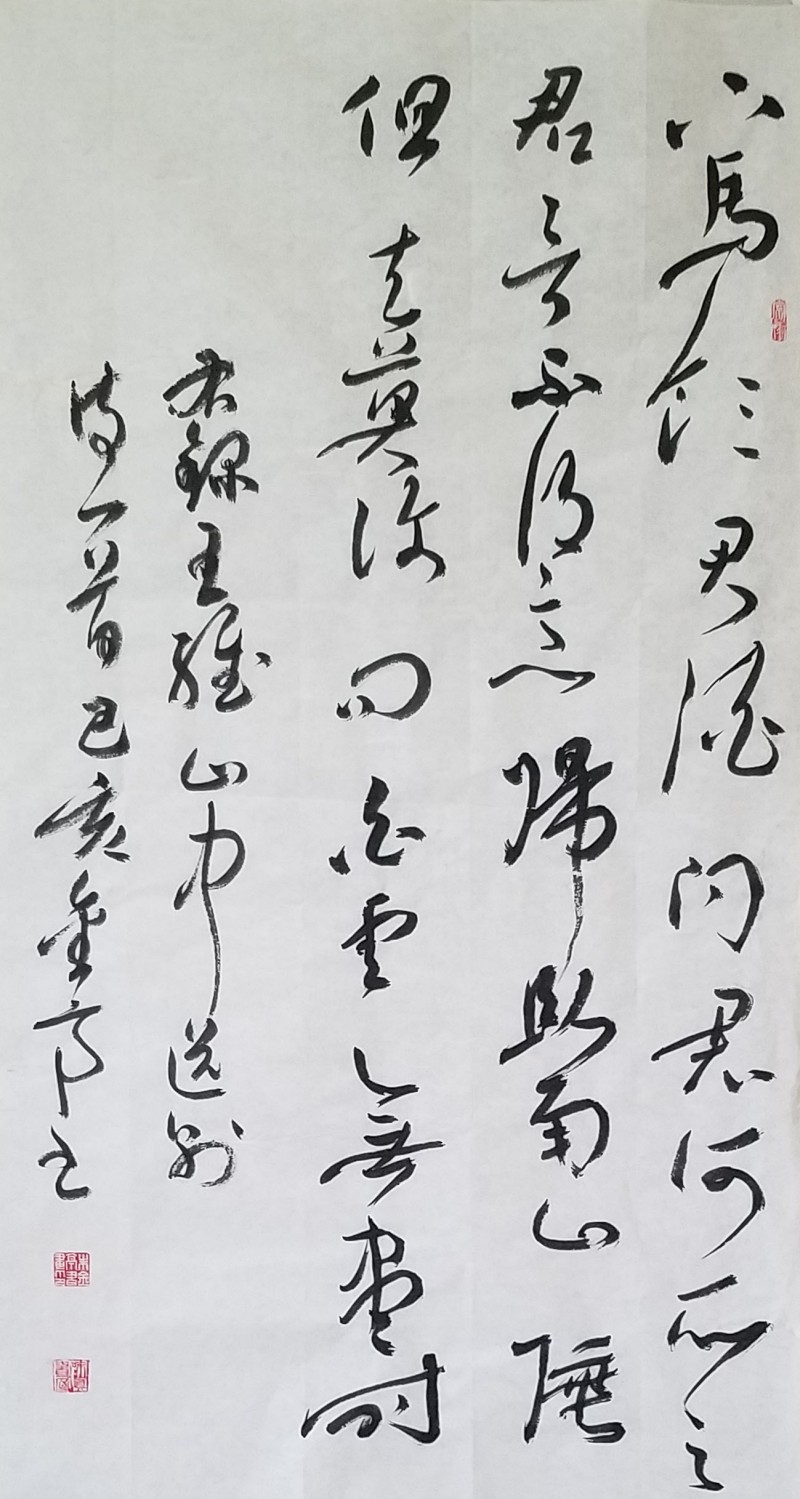 下馬飲君酒問君何所之
君言不得意歸臥南山陲
但去莫復問白雲無盡時
右錄王維山中送別
詩一首己亥金亭書